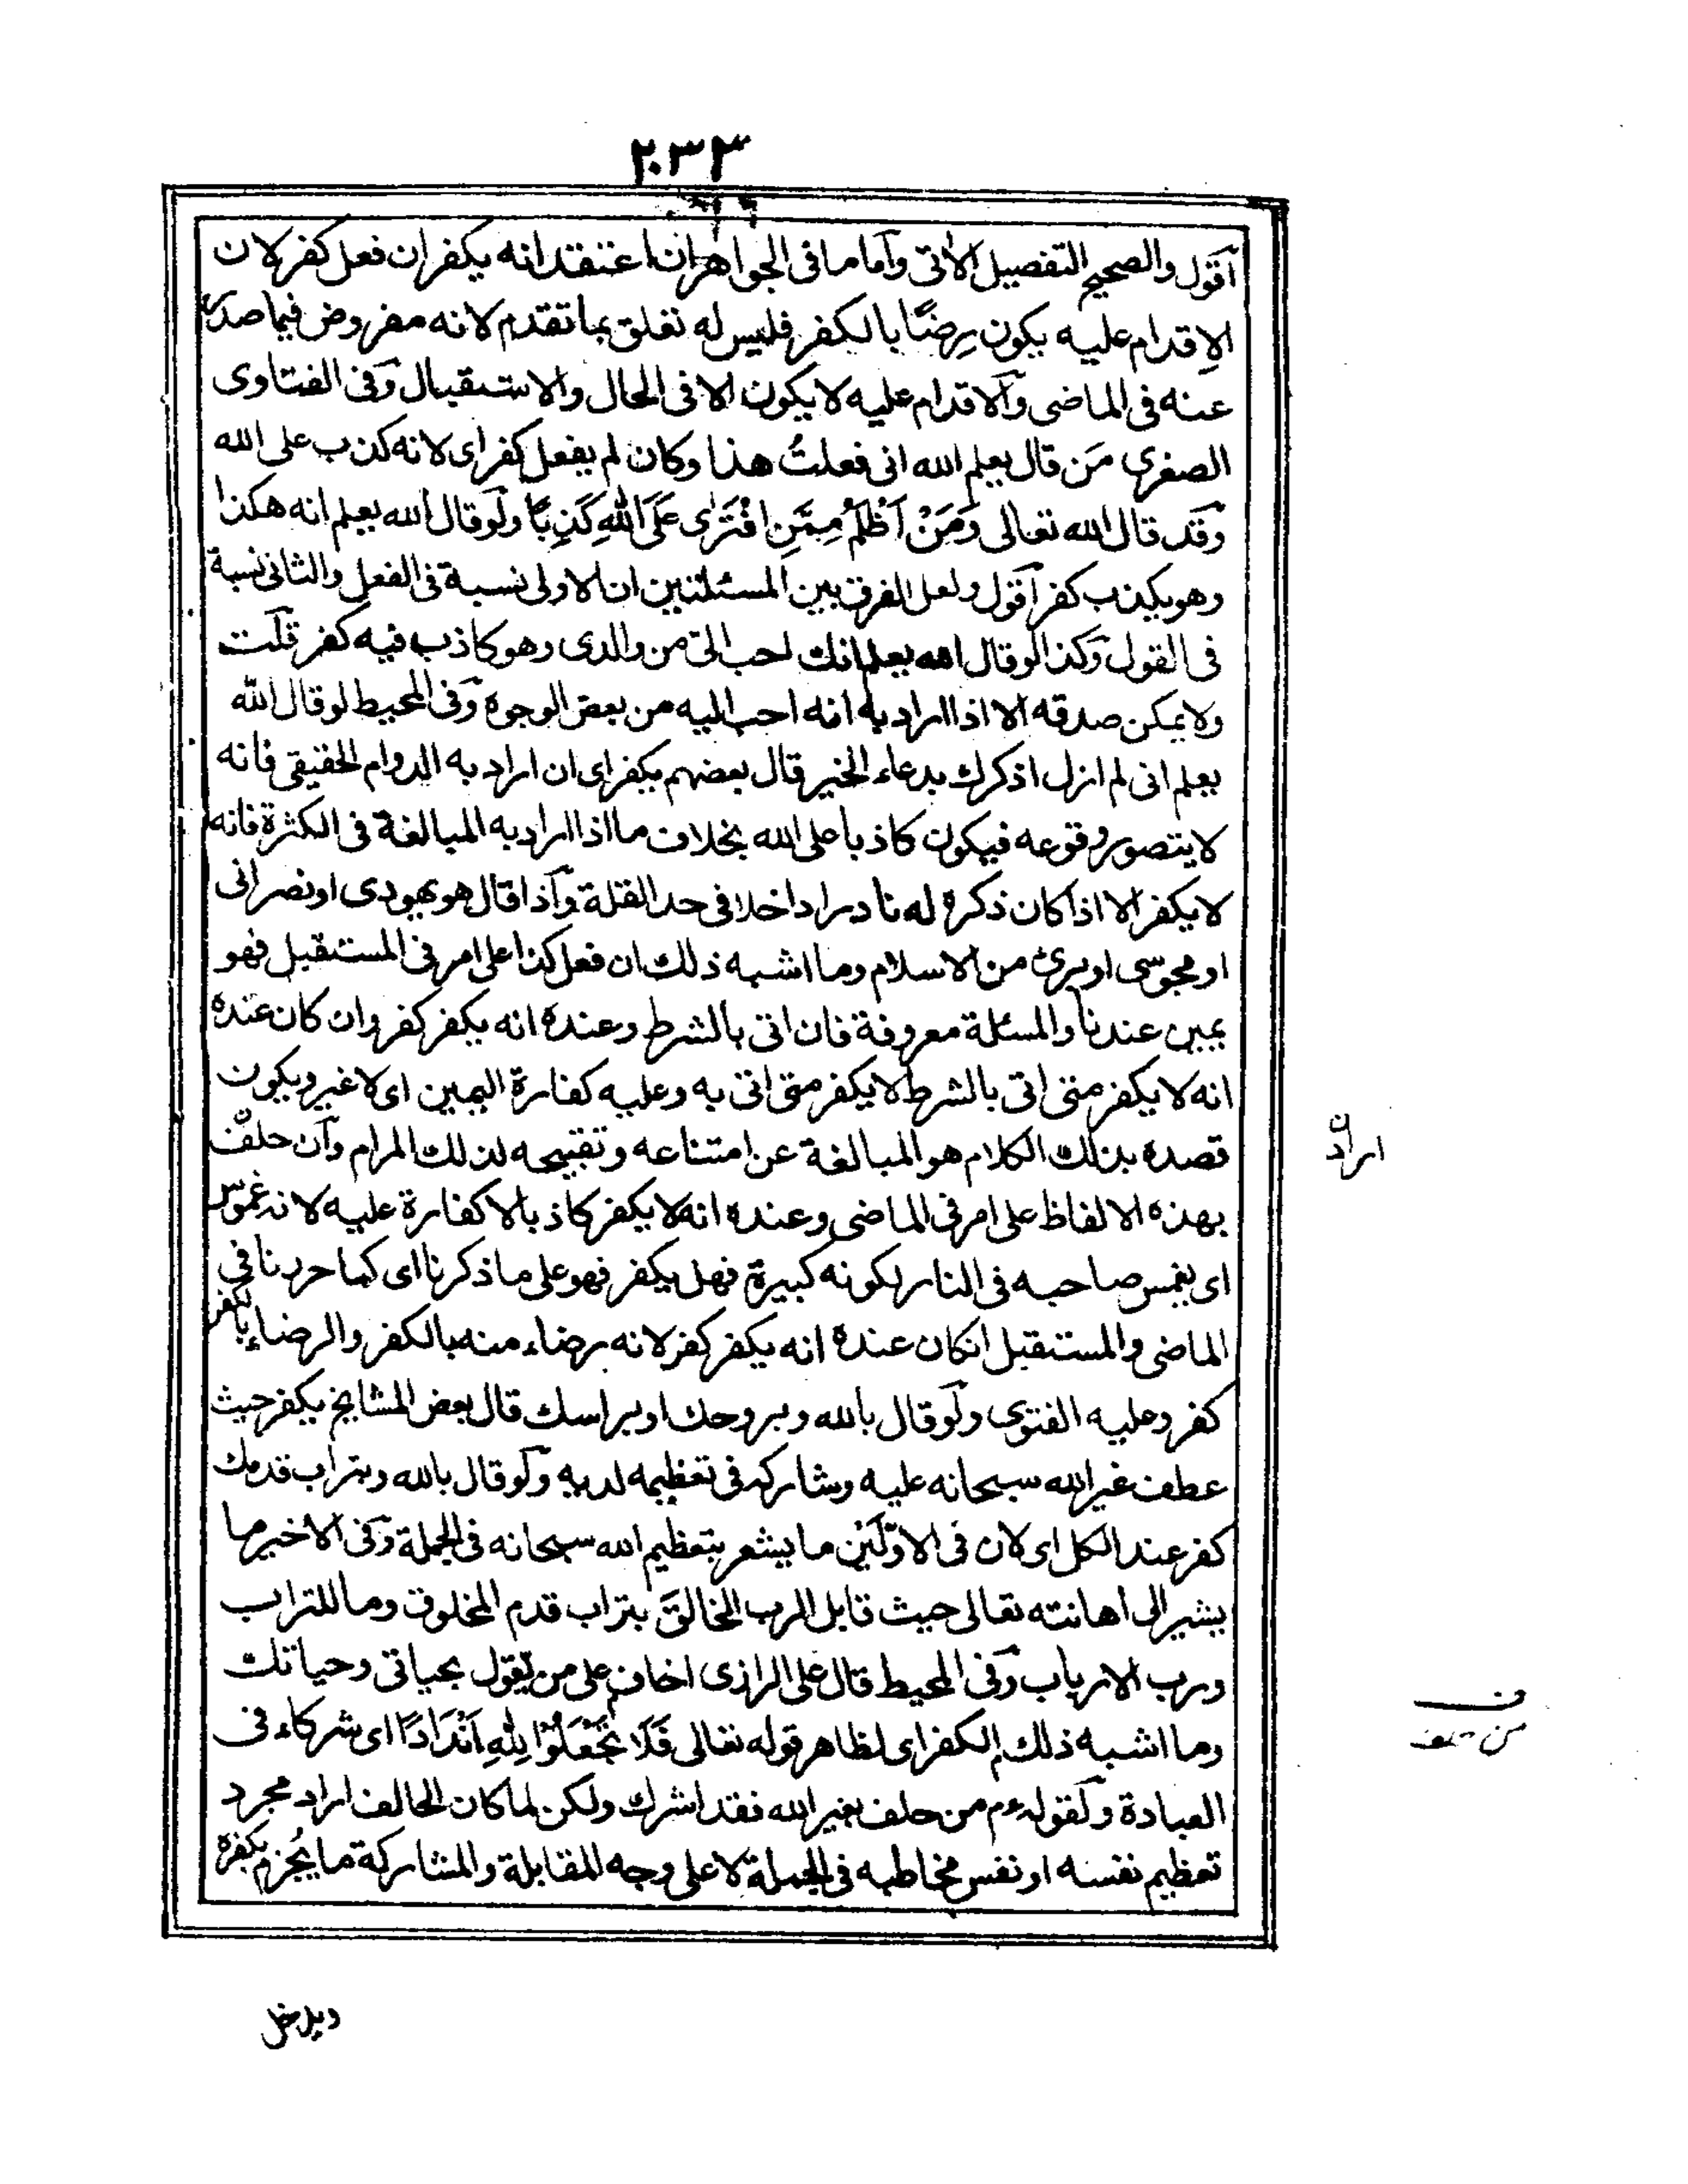 ٢٠٣٣
اقول والصحيح التفصيل الآتى وآما ما فى الجواهر ان اعتقد انه يكفر ان فعل كفر لان
الاِقدام عليه يكون رِضًا بالكفر فليس له تعلق بما تقدم لانه مفروض فيما صدر
عنه فى الماضى وآلاقدام عليه لا يكون الا فى الحال والاستقبال وَفى الفتاوى
الصغرى مَن قال يعلم الله انى فعلتُ هذا وكان لم يفعل كفر اى لانه كذب على الله
وقد قال الله تعالى وَمَنْ اَظْلَمُ مِمَّنِ افْتَرٰى عَلَى اللّٰهِ كَذِبًا ولَو قال الله يعلم انه هكذا
وهو يكذب كفر آقول ولعل الفرق بين المسئلتين ان الاولى نسبة فى الفعل والثانى نسبة
فى القول وَكذا لو قال الله يعلم انك احب الىّ من والدى وهو كاذب فيه كفر قلَت
ولا يمكن صدقه الا اذا اراد به انه احب اليه من بعض الوجوه وَفى المحيط لو قال الله
يعلم انى لم ازل اذكرك بدعاء الخير قال بعضهم يكفر اى ان اراد به الدوام الحقيقى فانه
لا يتصور وقوعه فيكون كاذبا على الله بخلاف ما اذا اراد به المبالغة فى الكثرة فانه
لا يكفر الا اذا كان ذكره له نادرا داخلا فى حد القلة وَآذا قال هو يهودى او نصرانى
او مجوسى او برئ من الاسلام وما اشبه ذلك ان فعل كذا على امر فى المستقبل فهو
يمين عندنا والمسئلة معروفة فان اتى بالشرط وعنده انه يكفر كفر وان كان عنده
انه لا يكفر متى اتى بالشرط لا يكفر متى اتى به وعليه كفارة اليمين اى لا غير ويكون
قصده بذلك الكلام هو المبالغة عن امتناعه وتقبيحه لذلك المرام وآن حلف
بهذه الالفاظ على امر فى الماضى وعنده انه لا يكفر كاذبا لا كفارة عليه لانه غموس
اى يغمس صاحبه فى النار لكونه كبيرة فهل يكفر فهو على ما ذكرنا اى كما حررنا فى
الماضى والمستقبل ان كان عنده انه يكفر كفر لانه رضاء منه بالكفر والرضاء بالكفر
كفر وعليه الفتوى ولَو قال بالله وبروحك او براسك قال بعض المشايخ يكفر حيث
عطف غير الله سبحانه عليه وشاركه فى تعظيمه لديه ولَو قال بالله وبتراب قدمك
كفر عند الكل اى لان فى الاوّلَيْن ما يشعر بتعظيم الله سبحانه فى الجملة وَفى الاخير ما
يشير الى اهانته تعالى حيث قابل الرب الخالقَ بتراب قدم المخلوق وما للتراب
ورب الارباب وَفى المحيط قال على الرازى اخاف على من يقول بحياتى وحياتك
وما اشبه ذلك الكفر اى لظاهر قوله تعالى فَلَا تَجْعَلُوْا لِلّٰهِ اَنْدَادًا اى شركاء فى
العبادة وَلقوله عم من حلف بغير الله فقد اشرك ولكن لما كان الحالف اراد مجرد
تعظيم نفسه او نفس مخاطبه فى الجملة لا على وجه المقابلة والمشاركة ما يُجزم بكفره
ان
اراد
ف
ويدخل